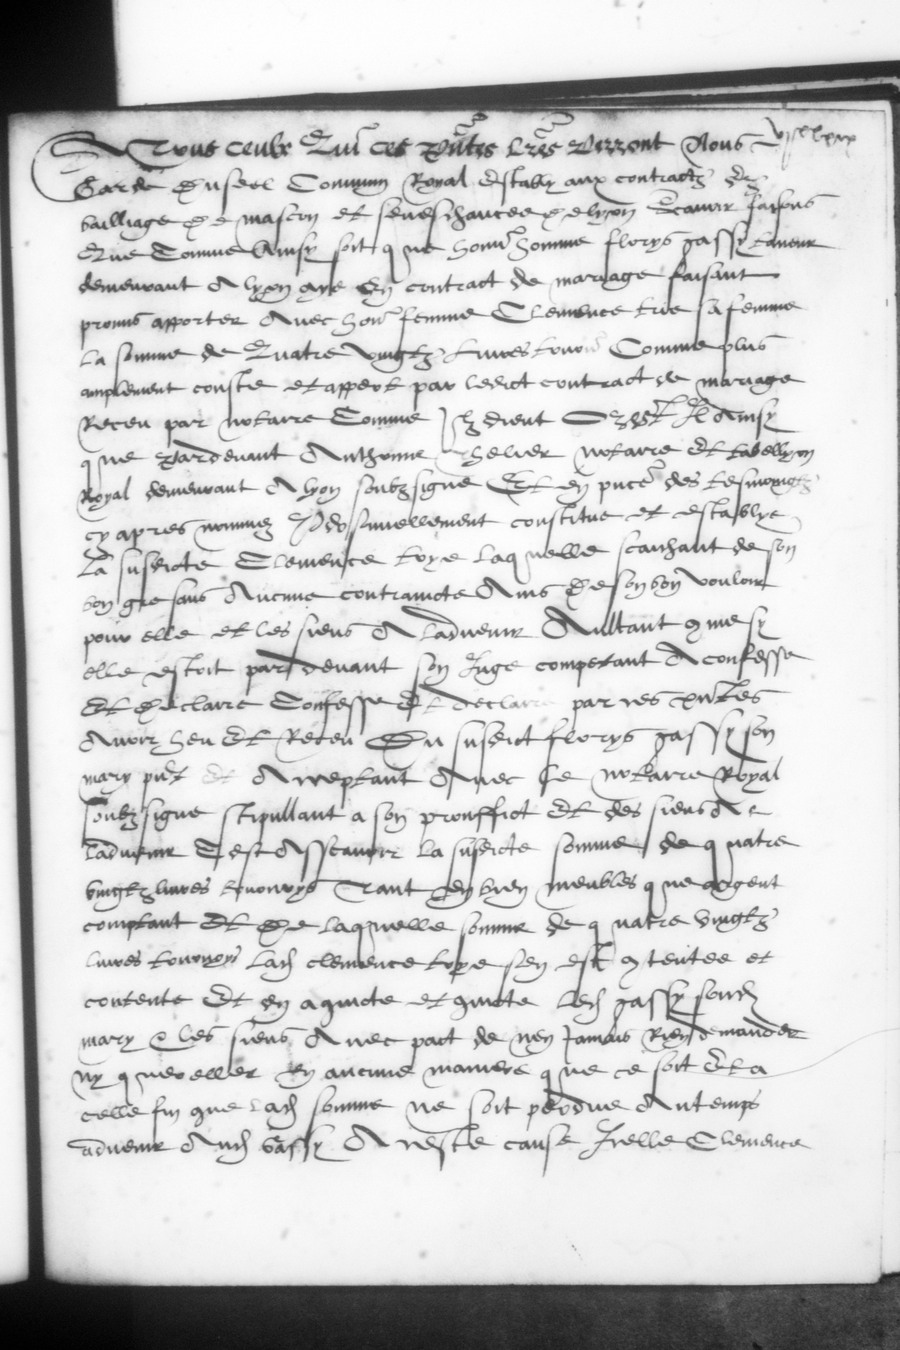 A Tous ceulx Qui ces pntes lres verront Nous
Garde Du seel Commun Royal estably aux contractz des
bailliage De mascon et seneschaucee De lyon Scavoir faisons
Que Comme Ainsy soit que honne homme florys gassy
demeurant A lyon aye En contract de mariage faisant
promis apporter Avec hone femme Clemence sa femme
La somme de Quatre vingtz Livres tourn Comme plus
amplement conste et appert par ledict contract de mariage
Receu par notaire Comme Ilz dient Or est Il Ainsy
que pardevant Anthoine notaire Et tabellyon
Royal demeurant A lyon soubzsigne Et en pnce des tesmoingtz
cy apres nommez personnellement constitue et establye
La susdicte Clemence laquelle scaichant de son
bon gre sans Aucune contraincte Ains De son bon vouloir
pour elle et les siens A Ladvenir Aultant comme sy
elle estoit par devant son Juge competant A confesse
Et Declaire Confesse Et declaire par ces pntes
Avoir heu Et Receu Du susdict florys gassy son
mary pnt Et Acceptant Avec le notaire Royal
soubzsigne stipullant a son prouffict Et des siens A
Ladvenir Cest Asscavoir La susdicte somme de quatre
vingtz livres tournoys Tant En bien meubles que argent
comptant Et De laquelle somme de quatre vingtz
livres tournoys Lad clemence sen est contentee et
contente Et en a quicte et quicte led gassy sond
mary & les siens Avec pact de nen Jamais Rien demander
ny quereller En aucune maniere que ce soit Et a
celle fin que Lad somme ne soit perdue Au temps
advenir Aud gassy A ceste cause Icelle Clemence